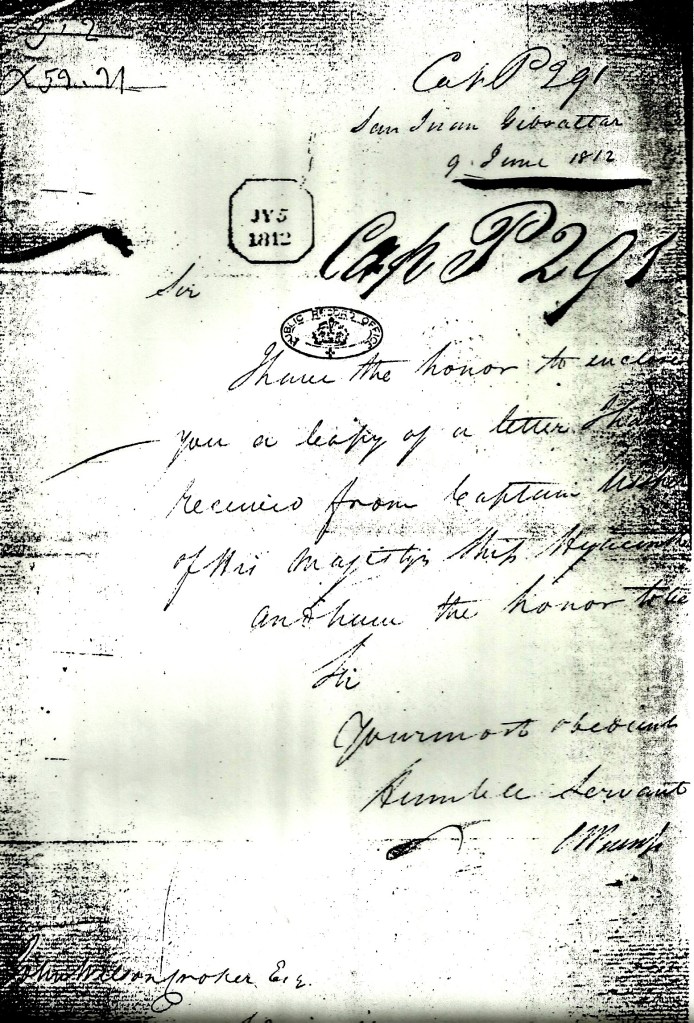 3.2
X59.21
Cap P 291
San Juan Gibraltar
9. June 1812
JY 5
1812
Cap P 291
Sir
PUBLIC RECORD OFFICE
I have the honor to enclose
you a Copy of a letter I have
received from Captain
of His Majestys Ship Hyacinth
and have the honor to be
Sir
Your most obedient
Humble Servant
John Wilson Croker Esq.